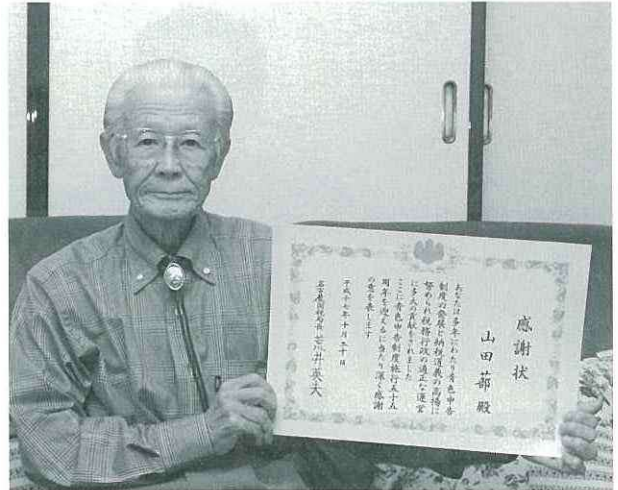 感謝状
山田 節 殿
あなたは多年にわたり青色申告
制度の発展と納税道義の高揚に
努められ税務行政の適正な運営
に多大の貢献をされました
ここに青色申告制度施行五十五
周年を迎えるに当たり深く感謝
の意を表します
平成十七年十月三十日
名古屋国税局長 荒井英夫